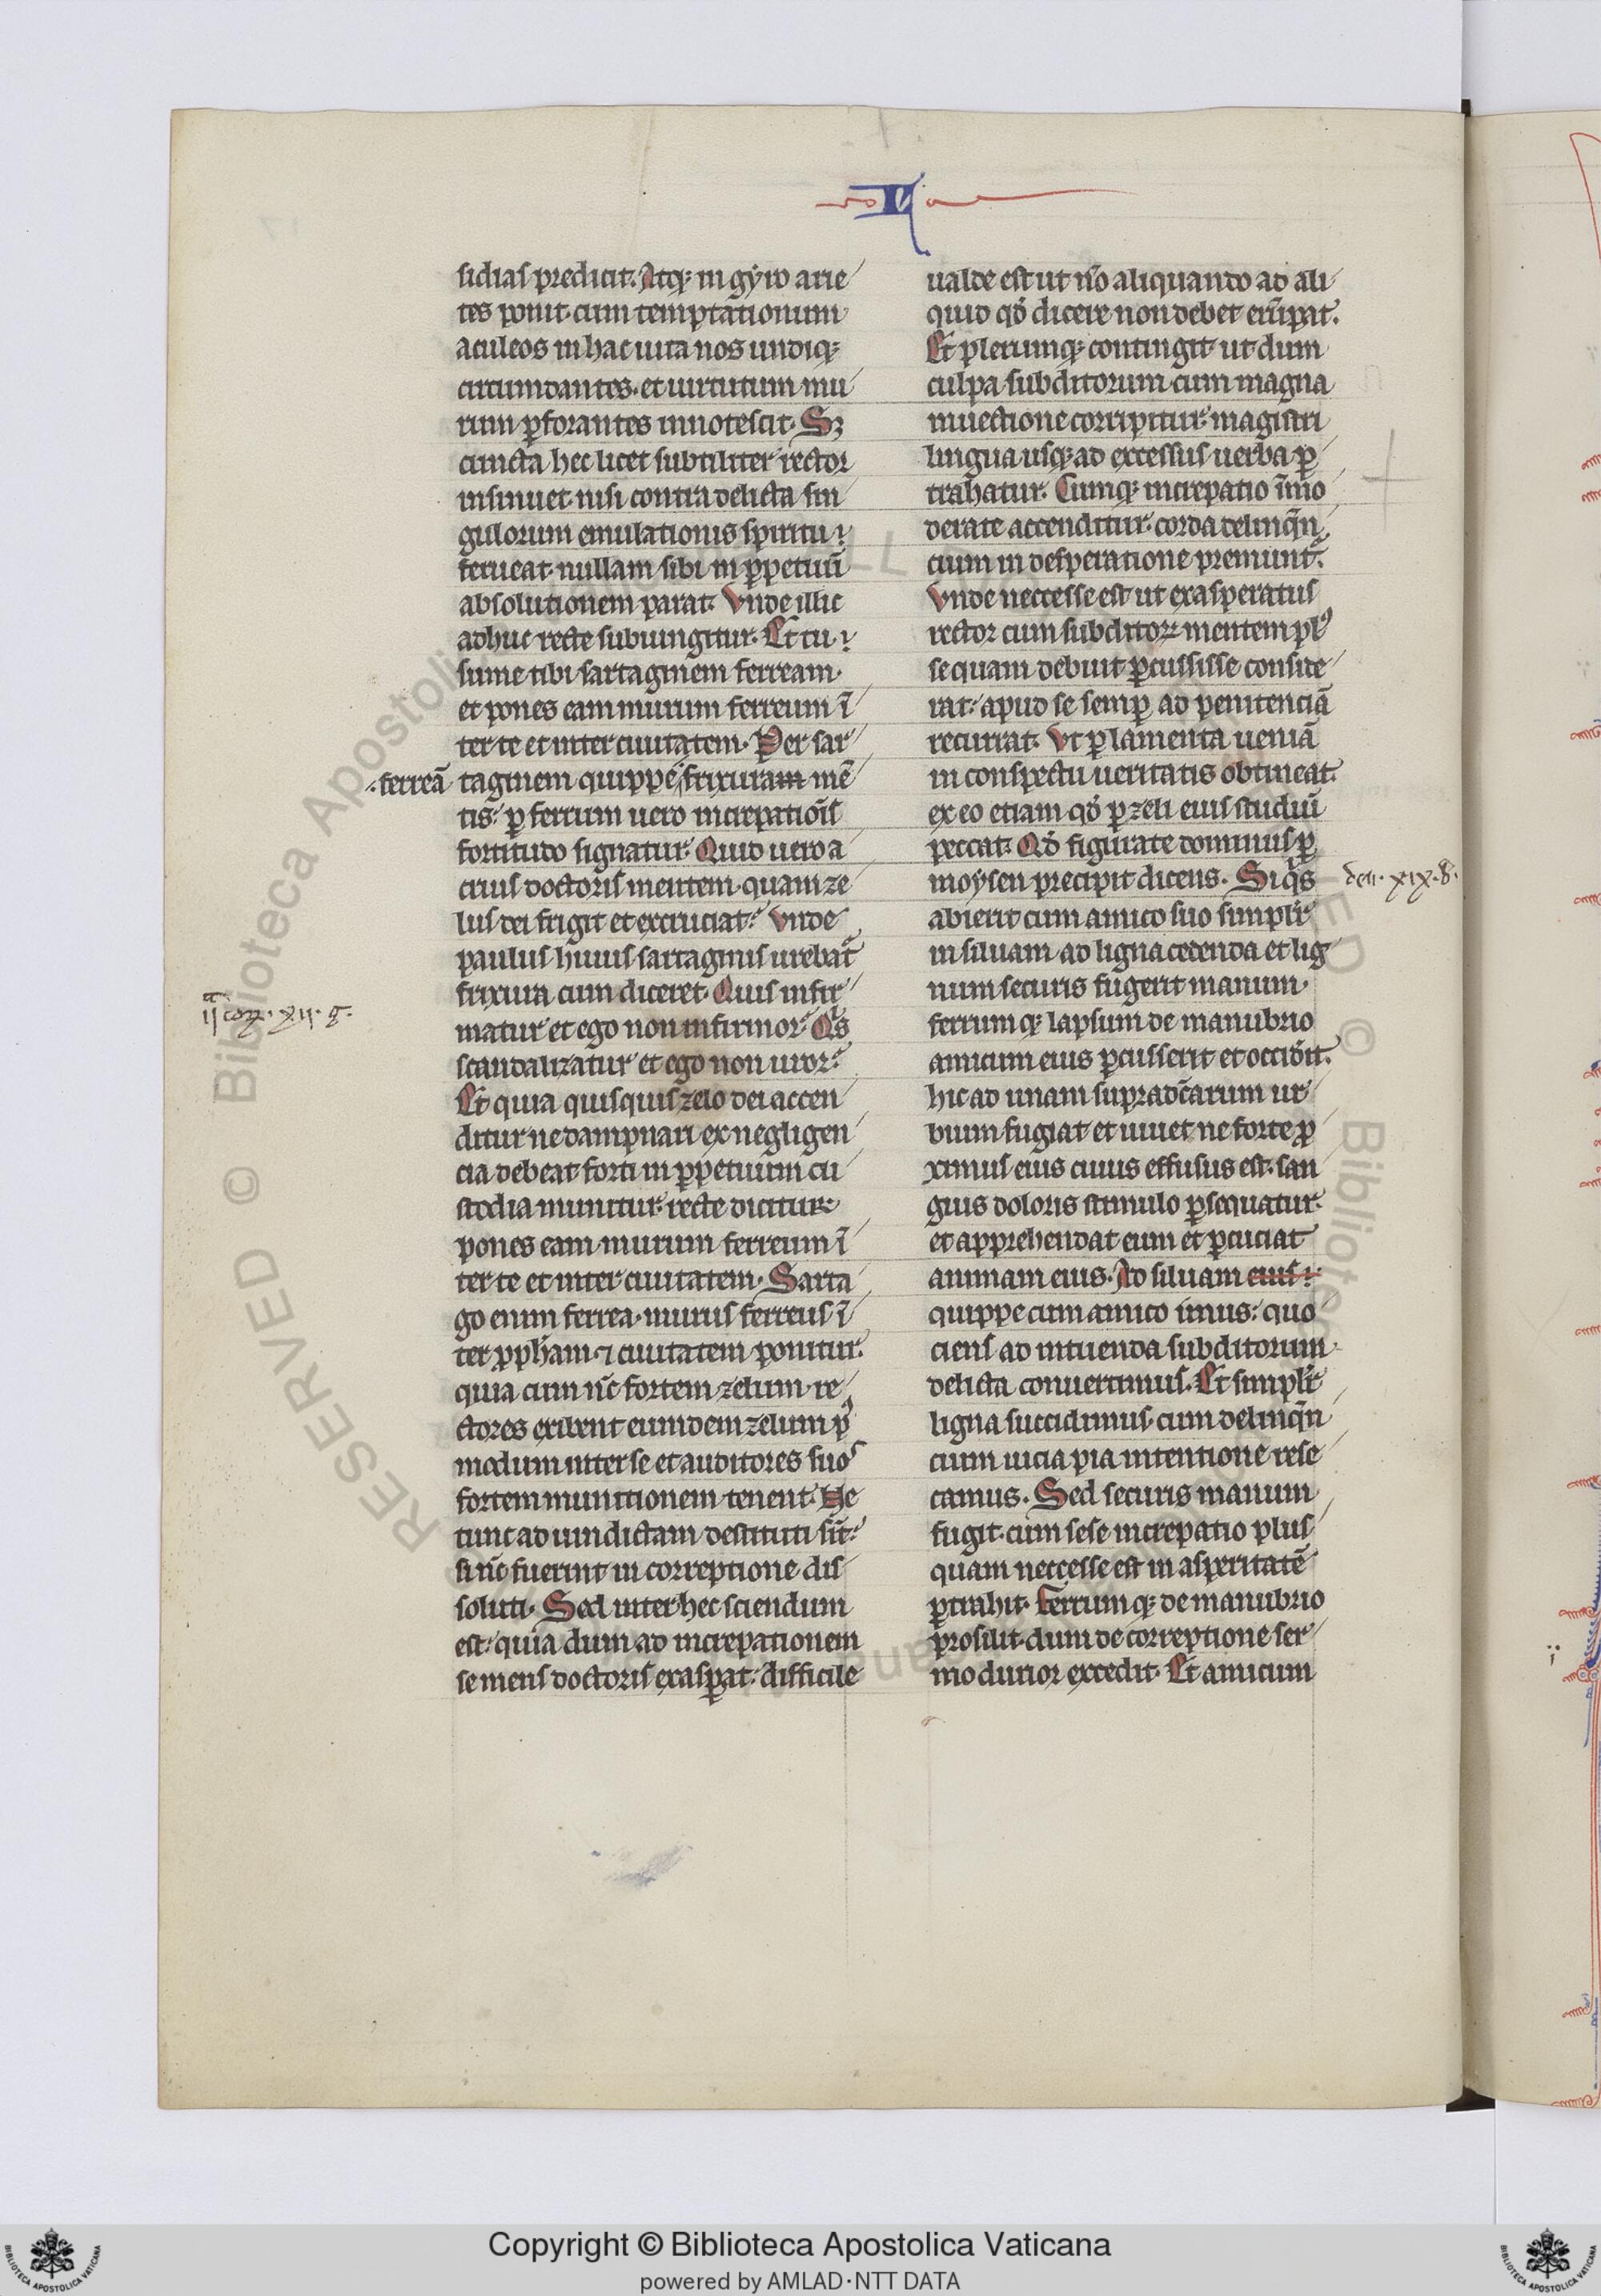 sidias predicit. Atq; in gyro arie
tes ponit. cum temptationum
aculeos in hac uita nos undiq;
circumdantes. et uirtutum mu
rum ꝑforantes innotescit. Sꝫ
cuncta hec licet subtiliter rector
insinuet. nisi contra delicta sin
gulorum emulationis spiritu
ferueat. nullam sibi in ꝑpetuũ
absolutionem parat. Vnde illic
adhuc recte subiungitur. Et tu
sume tibi sartaginem ferream.
et pones eam murum ferreum ĩ
ter te et inter ciuitatem. Per sar
.ferreã taginem quippe frixuram mẽ
tis. ꝑ ferrum uero increpatiõis
fortitudo signatur. Quid uero a
crius doctoris mentem. quam ze
lus dei frigit et excruciat. Vnde
paulus huius sartaginis urebat᷑
frixura cum diceret. Quis infir
ijᵃ corꝝ. xij. g.
matur et ego non infirmor. Qͥs
scandalizatur et ego non uror.
Et quia quisquis zelo dei accen
ditur ne dampnari ex negligen
cia debeat. forti in ꝑpetuum cu
stodia munitur. recte dicitur.
pones eam murum ferreum ĩ
ter te et inter ciuitatem. Sarta
go enim ferrea. murus ferreus ĩ
ter ꝓph̃am ⁊ ciuitatem ponitur.
quia cum nc̃ fortem zelum re
ctores exibent eumdem zelum pͦ
modum inter se et auditores suos
fortem munitionem tenent. Ne
tunc ad uindictam destituti sĩt.
si nc̃ fuerint in correptione dis
soluti. Sed inter hec sciendum
est. quia dum ad increpationem
se mens doctoris exasꝑat. difficile
IIII
ualde est ut nõ aliquando ad ali
quid qđ dicere non debet erũpat.
Et plerumq; contingit ut dum
culpa subditorum cum magna
inuectione corripitur. magistri
lingua usq; ad excessus uerba ꝑ
trahatur. Cumq; increpatio ĩmo
derate accenditur. corda delinq̃n
cium in desperatione premunt᷑.
Vnde neccesse est ut exasperatus
rector cum subditoꝝ mentem plꝰ
se quam debuit ꝑcussisse conside
rat. apud se semꝑ ad penitenciã
recurrat. Vt ꝑ lamenta ueniã
in conspectu ueritatis obtineat.
ex eo etiam qđ ꝑ zeli eius studiũ
peccat. Qđ figurate dominus ꝑ
moysen precipit dicens. Si qͥs
deu. xix. b.
abierit cum amico suo simplr̃
in siluam ad ligna cedenda et lig
num securis fugerit manum.
ferrumq; lapsum de manubrio
amicum eius ꝑcusserit et occid̾it.
hic ad unam supradc̃arum ur
bium fugiat et uiuet ne forte ꝓ
ximus eius cuius effusus est san
guis doloris stimulo ꝑsequatur.
et apprehendat eum et ꝑcuciat
animam eius. Ad siluam eius
quippe cum amico imus. quo
ciens ad intuenda subditorum
delicta conuertimus. Et simplr̃
ligna succidimus. cum delinq̃n
cium uicia pia intentione rese
camus. Sed securis manum
fugit. cum sese increpatio plus
quam neccesse est in asperitatẽ
ꝑtrahit. Ferrumq; de manubrio
prosilit. dum de correptione ser
mo durior excedit. Et amicum
RESERVED © Biblioteca Apostolica
Copyright © Biblioteca Apostolica Vaticana
powered by AMLAD·NTT DATA